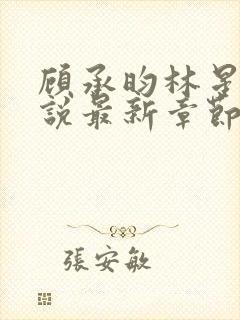 顾承昀林星
說最新章節
張安敏